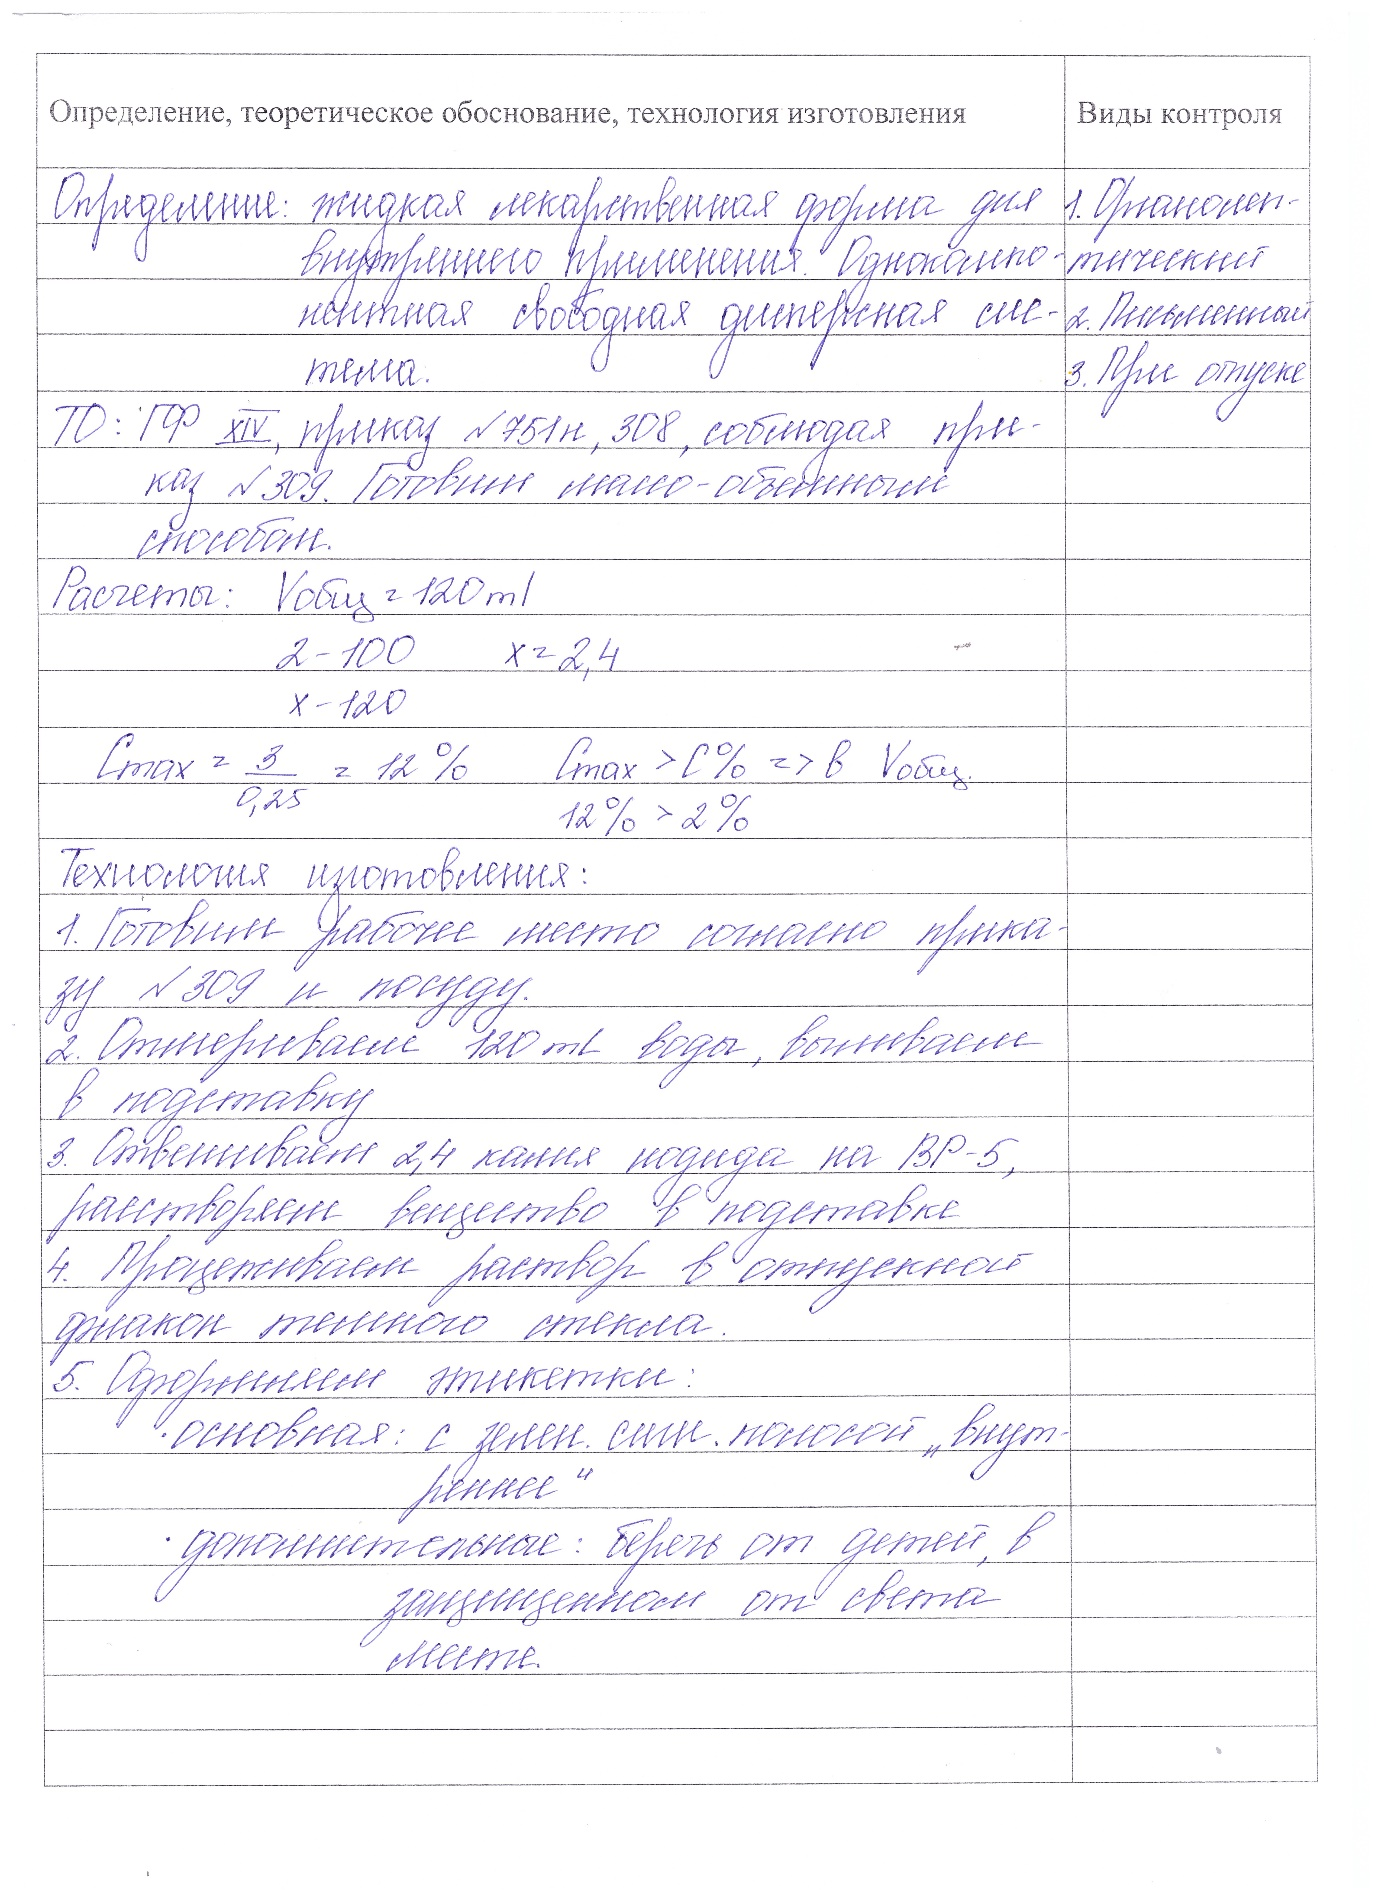 Определение, теоретическое обоснование, технология изготовления
Виды контроля
Определение: жидкая лекарственная форма для
внутреннего применения. Однокомпо-
нентная свободная дисперсная сис-
тема.
1. Органолеп-
тический
2. Письменный
3. При отпуске
ТО: ГФ XIV, приказ №751н, 308, соблюдая при-
каз №309. Готовим массо-объемным
способом.
Расчеты: Vобщ = 120 ml
2 - 100 x = 2,4
x - 120
Cmax = 3/0,25 = 12% Cmax > C% => в Vобщ.
12% > 2%
Технология изготовления:
1. Готовим рабочее место согласно прика-
зу №309 и посуду.
2. Отмериваем 120 ml воды, выливаем
в подставку
3. Отвешиваем 2,4 калия иодида на ВР-5,
растворяем вещество в подставке
4. Процеживаем раствор в отпускной
флакон темного стекла.
5. Оформляем этикетки:
· основная: с зелен. сигн. полосой „внут-
реннее“
· дополнительные: беречь от детей, в
защищенном от света
месте.